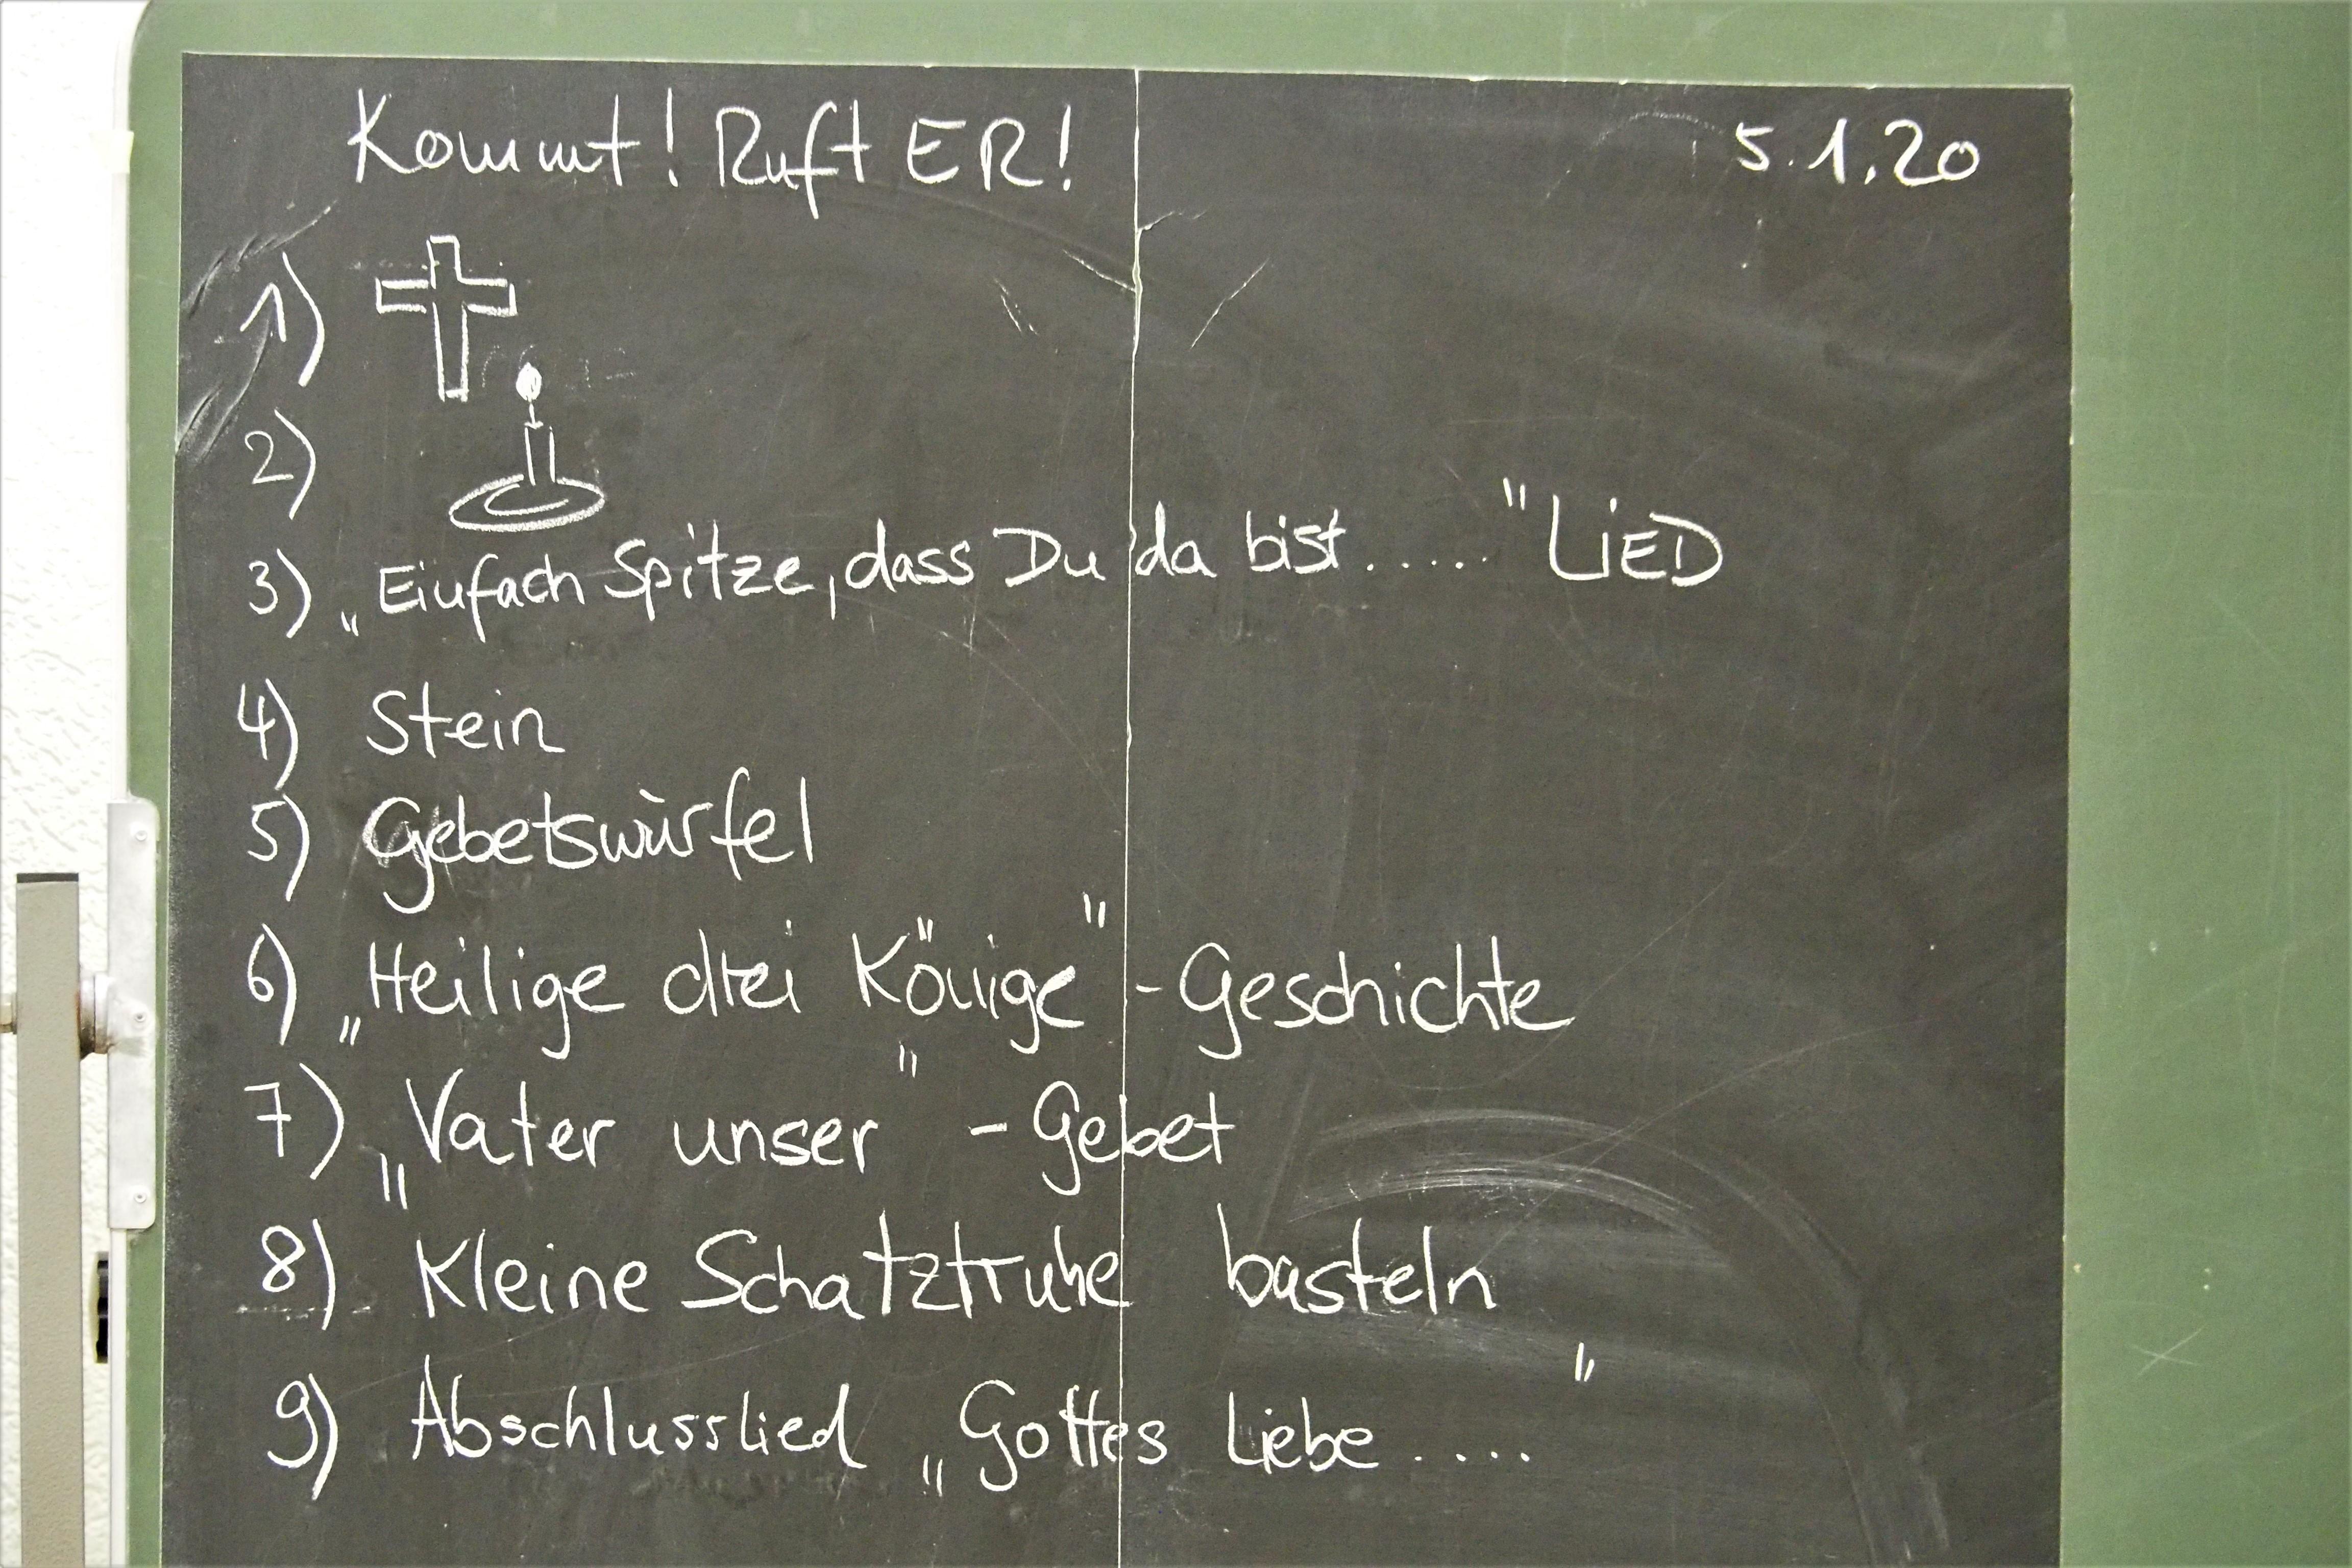 Kommt! Ruft ER! 5.1.20
1)
2)
3) „Einfach Spitze, dass Du da bist....." LiED
4) Stein
5) Gebetswürfel
6) „Heilige drei Könige" - Geschichte
7) „Vater unser" - Gebet
8) Kleine Schatztruhe basteln
9) Abschlusslied „Gottes Liebe...."